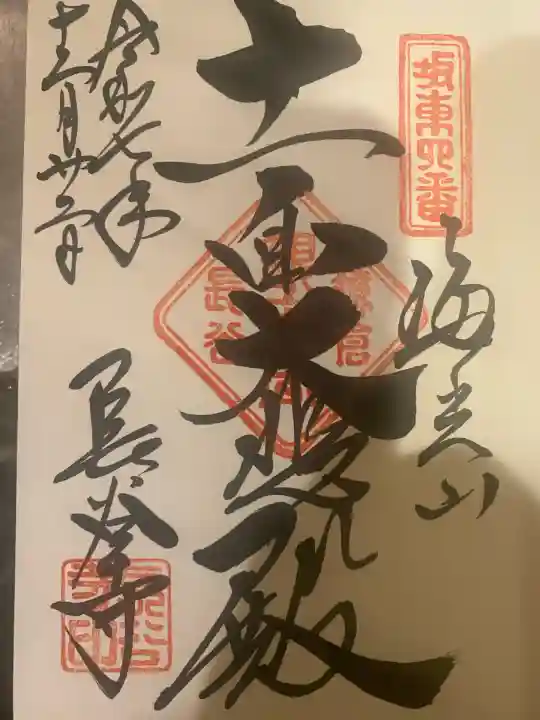 坂東四番
海光山
十一面大悲殿
長谷寺
令和七年
十二月廿二日
鎌倉
長谷